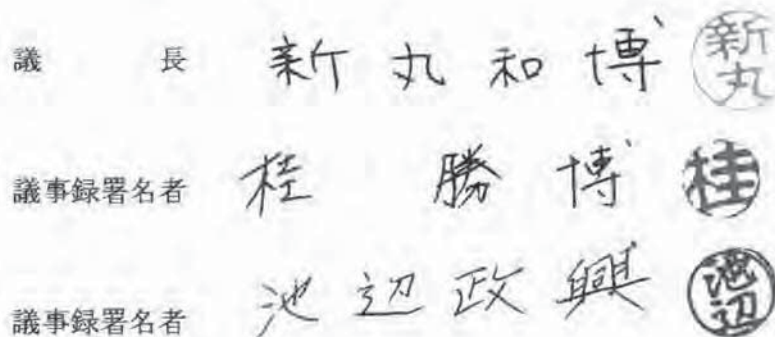 議 長 新丸和博 新丸
議事録署名者 桂 勝博 桂
議事録署名者 池辺政興 池辺